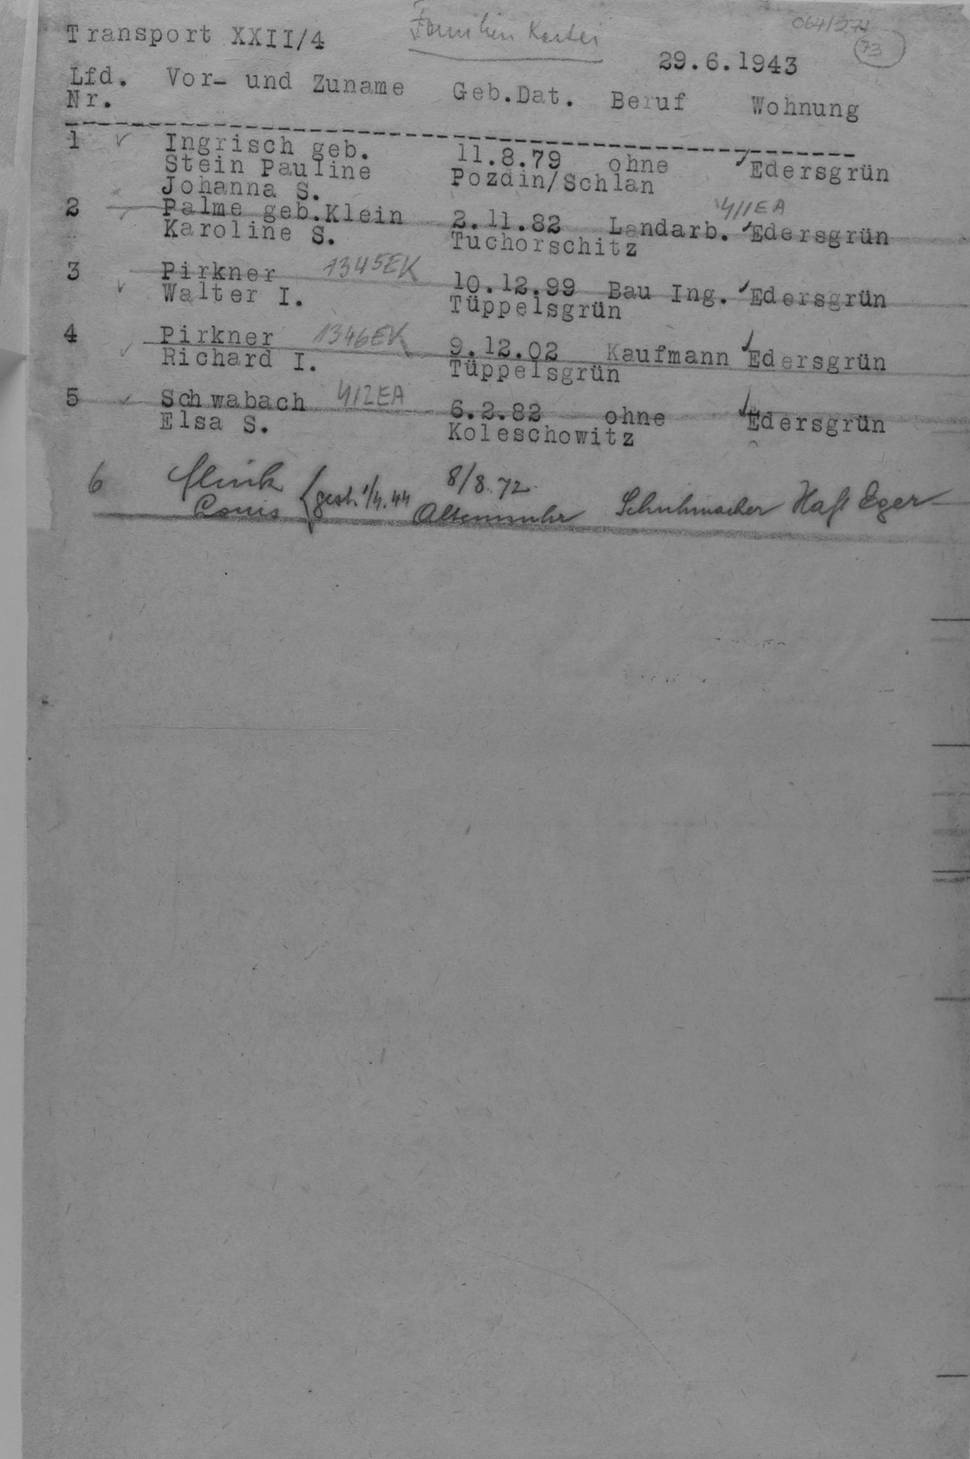 Familien Kartei
Transport XXII/4
064/274
73
29.6.1943
Lfd. Vor- und Zuname Geb.Dat. Beruf Wohnung
Nr.
1 Ingrisch geb. 11.8.79 ohne Edersgrün
Stein Pauline Pozdin/Schlan
Johanna S.
4/1EA
2 Palme geb.Klein 2.11.82 Landarb. Edersgrün
Karoline S. Tuchorschitz
3 Pirkner 1345EK 10.12.99 Bau Ing. Edersgrün
Walter I. Tüppelsgrün
4 Pirkner 1346EK 9.12.02 Kaufmann Edersgrün
Richard I. Tüppelsgrün
5 Schwabach 4/2EA 6.2.82 ohne Edersgrün
Elsa S. Koleschowitz
6 gest. 1/4.44 8/8.72 Schuhmacher Haft Eger
Altenmuhr